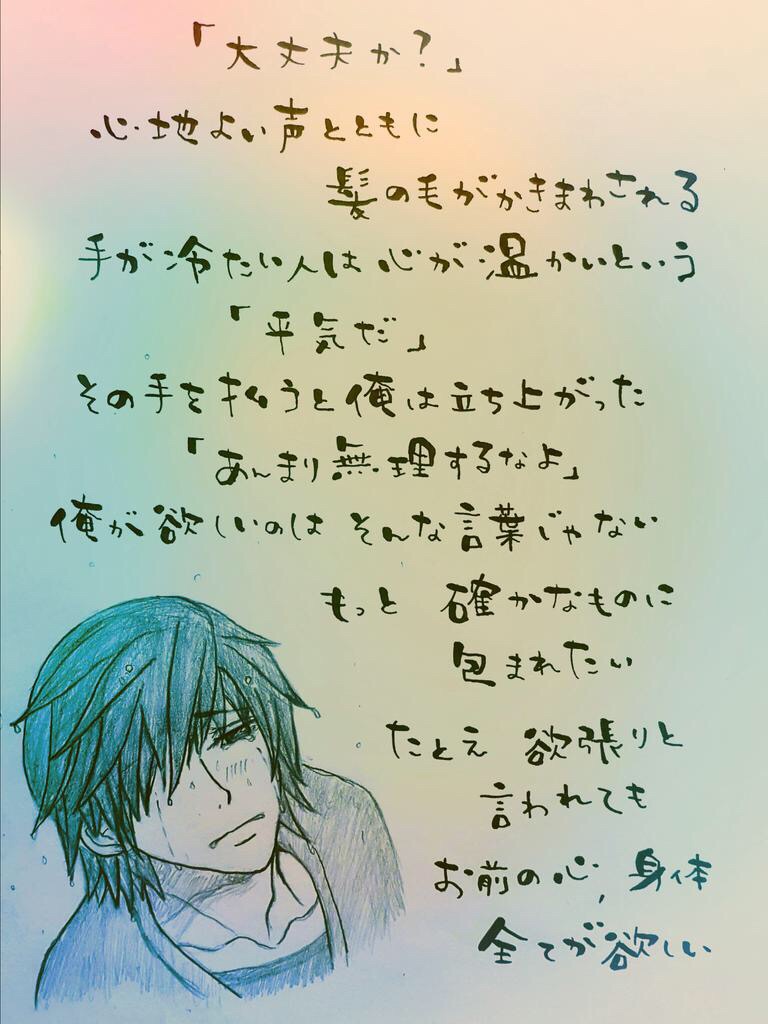 「大丈夫か？」
心地よい声とともに
髪の毛がかきまわされる
手が冷たい人は心が温かいという
「平気だ」
その手を払うと俺は立ち上がった
「あんまり無理するなよ」
俺が欲しいのは そんな言葉じゃない
もっと 確かなものに
包まれたい
たとえ 欲張りと
言われても
お前の心、身体
全てが欲しい